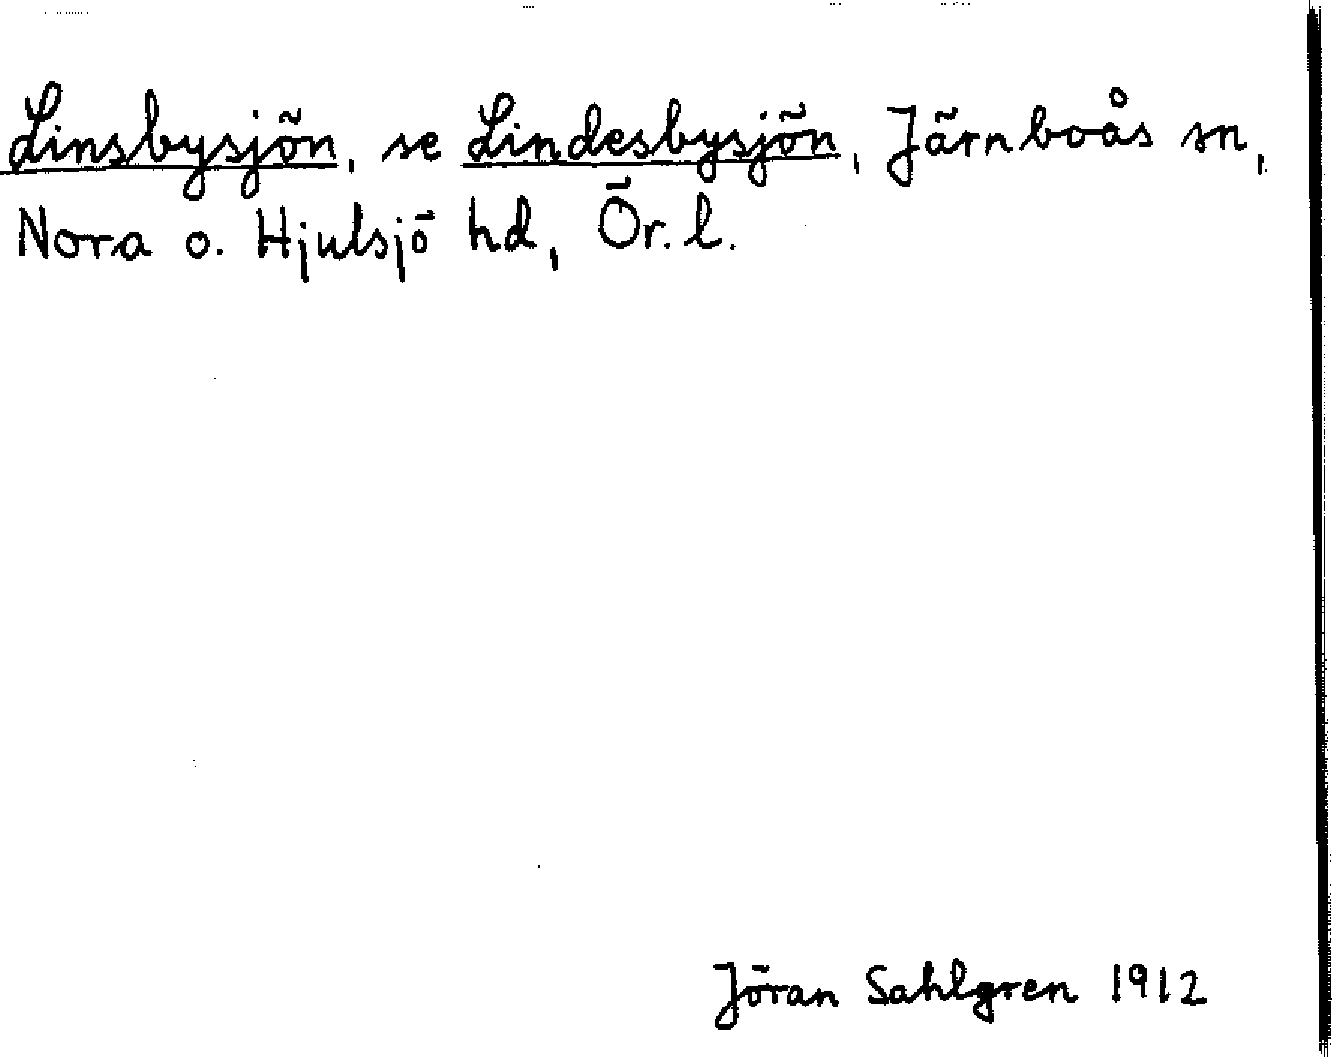 Linsbysjön, se Lindesbysjön, Järnboås sn,
Nora o. Hjulsjö hd, Ör. l.
Jöran Sahlgren 1912